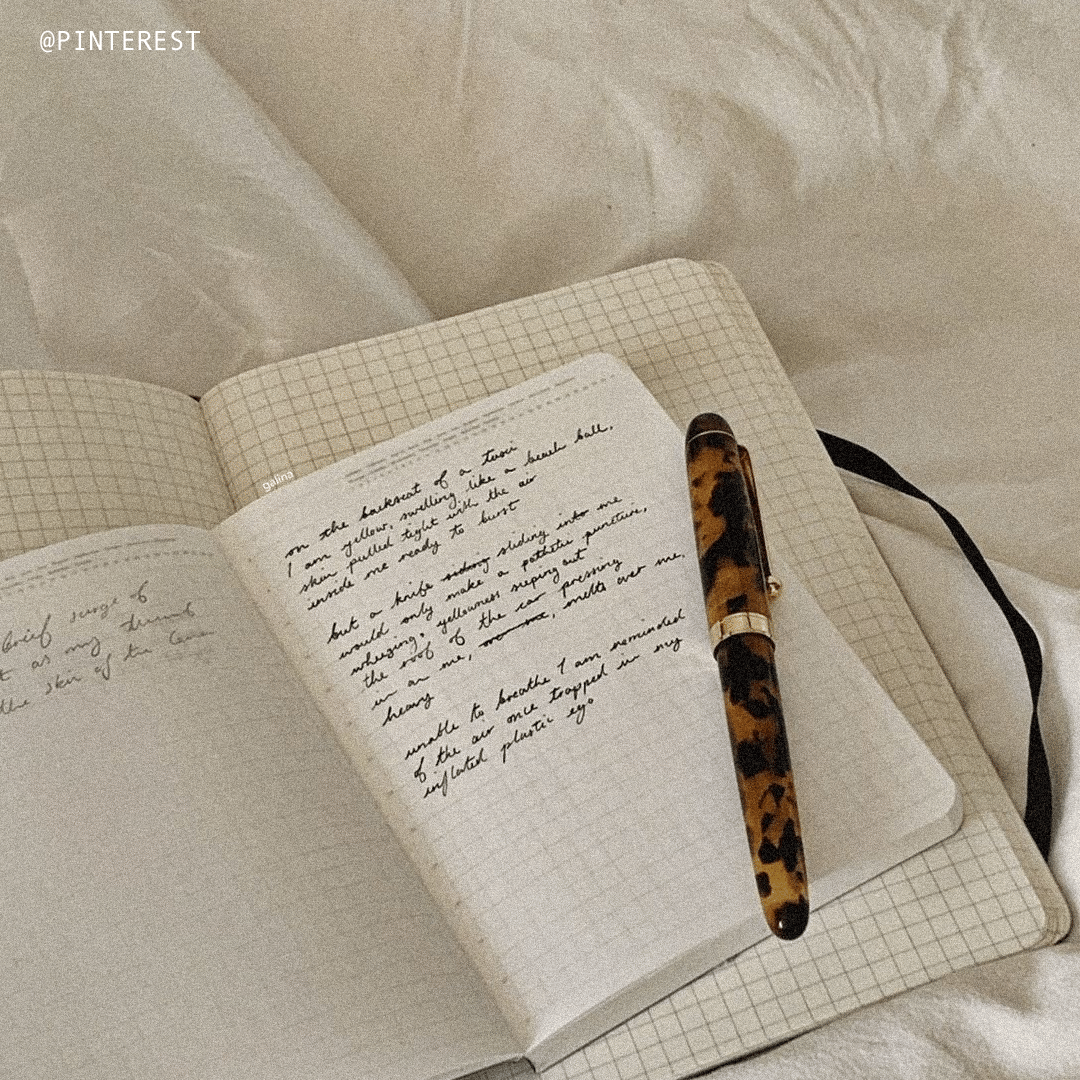 @PINTEREST
galina
on the backseat of a tuсci
I am yellow, swelling like a beach ball,
skin pulled tight with the air
inside me ready to burst
but a knife sliding into me
would only make a pathetic puncture,
wheezing, yellowness seeping out
the roof of the car pressing
in on me, melts over me,
heavy
unable to breathe I am reminded
of the air once trapped in my
inflated plastic ego
brief surge of
t as my thumb
the skin of the